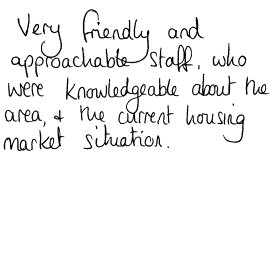 Very friendly and
approachable staff, who
were knowledgeable about the
area, & the current housing
market situation.